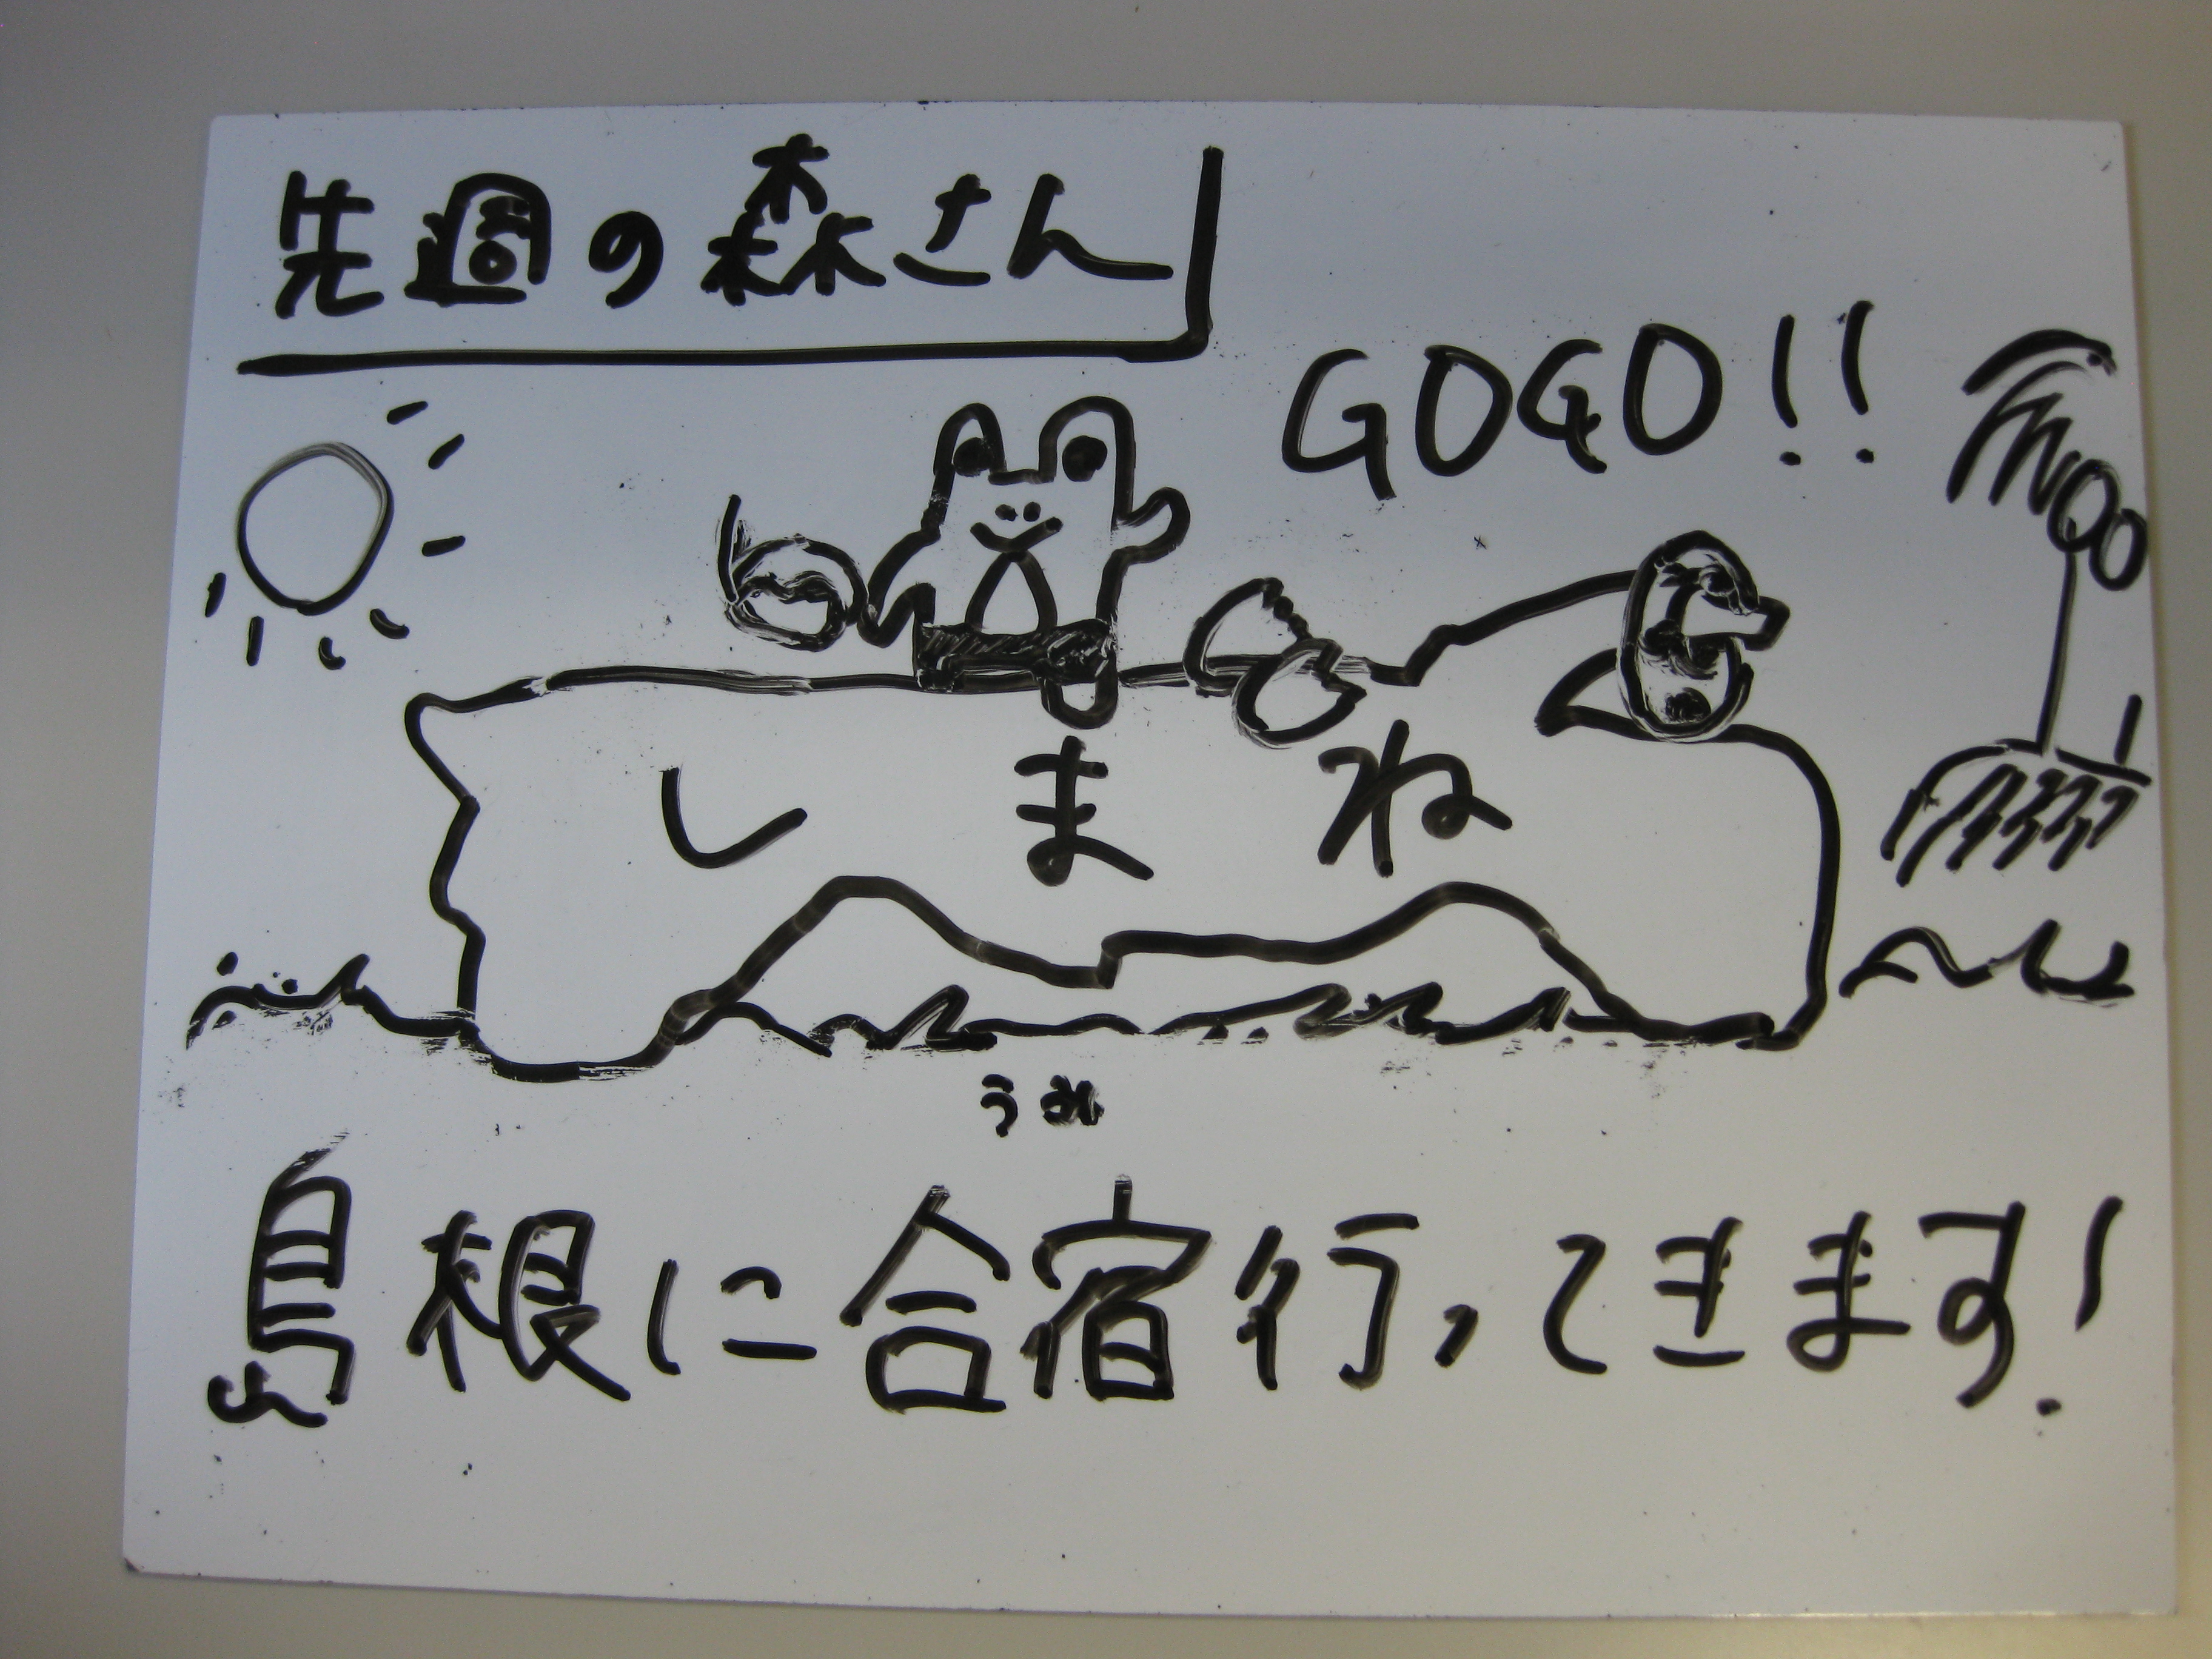 先週の森さん
GOGO!!
しまね
うみ
島根に合宿行ってきます!